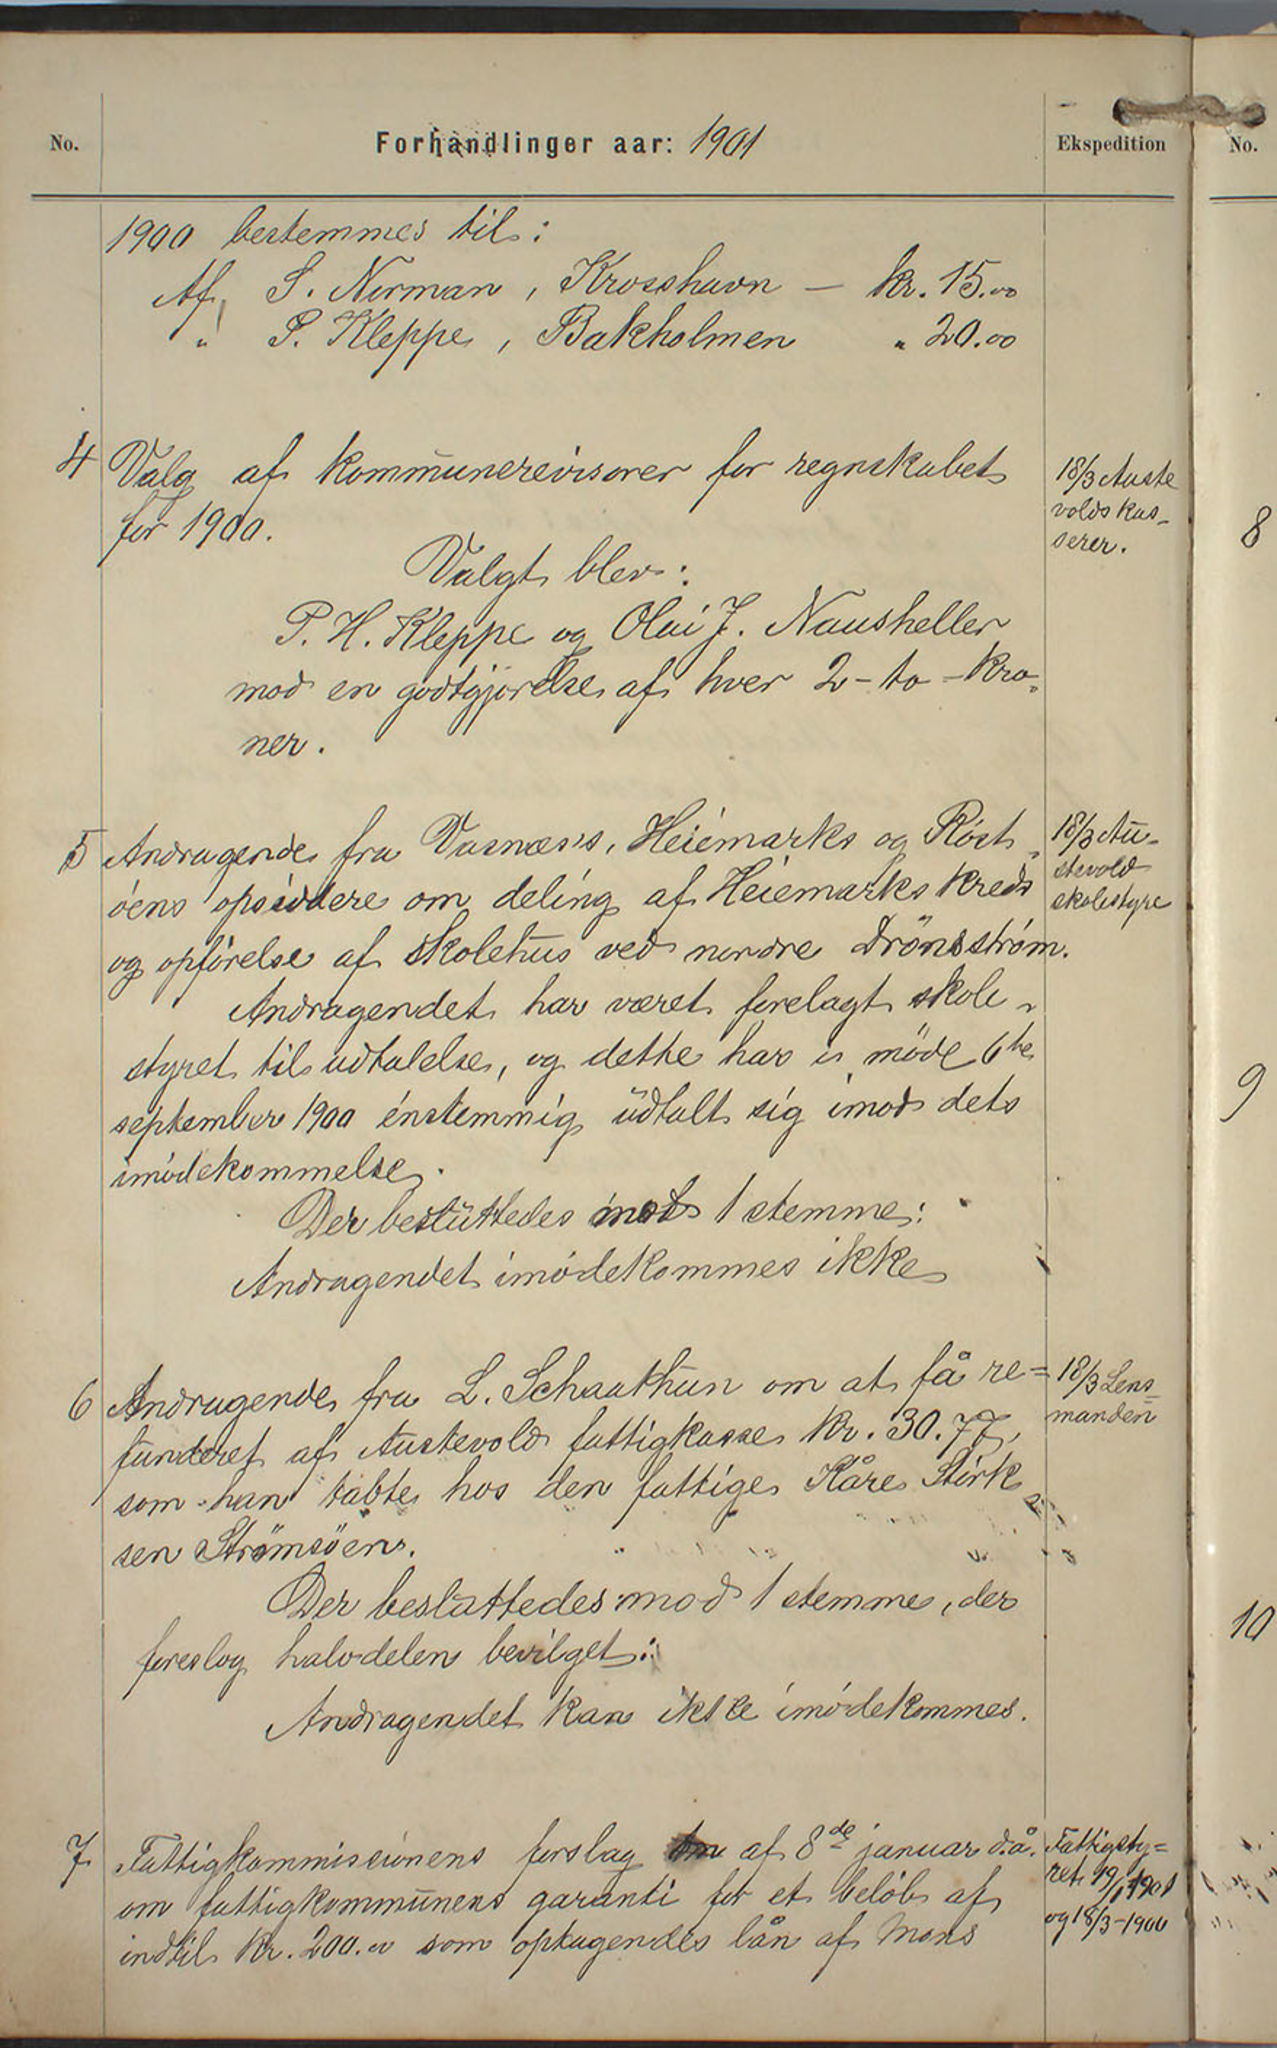 No.
Forhandlinger aar: 1901
Ekspedition
No.
1900 bestemmes til:
Af S. Nirman, Krosshavn – kr. 15.00
" P. Kleppe, Bakholmen " 20.00
4 Valg af kommunerevisorer for regnskabet
for 1900.
18/3 Auste
volds kas-
serer.
Valgt blev:
P. H. Kleppe og Olai J. Nausheller
mod en godtgjørelse af hver 2 – to – kro-
ner.
5 Andragende fra Vasnæs's, Heiemarks og Röst-
öens opsiddere om deling af Heiemarks kreds
og opförelse af skolehus ved nordre Drönsström.
18/3 Au-
stevold
skolestyre
Andragendet har været forelagt skole-
styret til udtalelse, og dette har i möde 6te
september 1900 énstemmig udtalt sig imod dets
imödekommelse.
Der besluttedes mod 1 stemme:
Andragendet imödekommes ikke
6 Andragende fra L. Schaathun om at få re=
funderet af Austevold fattigkasse kr. 30.77,
som han tabte hos den fattige Kåre Störk
sen Strömsöen.
18/3 Lens-
manden
Der besluttedes mod 1 stemme, der
foreslog halvdelen bevilget:
Andragendet kan ikke imödekommes.
7 Fattigkommissionens forslag af 8de januar d.å.
om fattigkommunens garanti for et belöb af
indtil kr. 200.00 som optagendes lån af Mons
Fattigsty=
ret 19/1 1901
og 18/3-1900
8
9
10